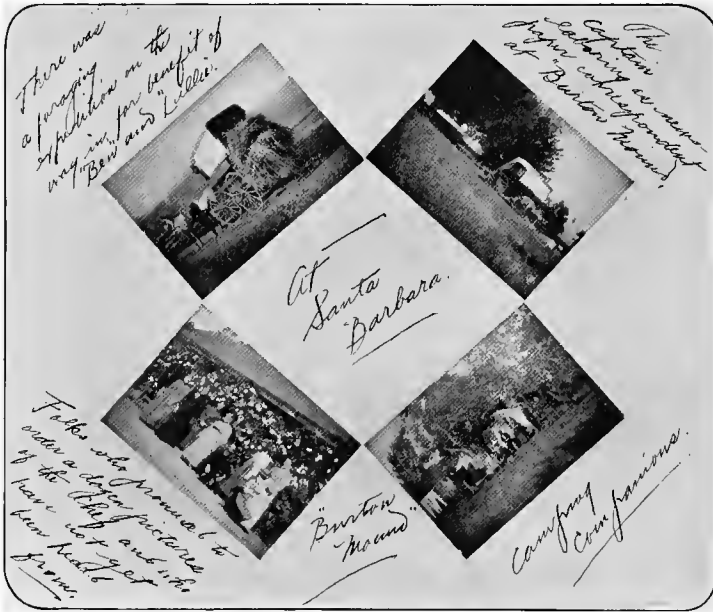 There was
a foraging
expedition on the
way "in" for benefit of
"Ben" and "Lillie".
The
Captain
as news-
paper correspondent
at "Burton Mound"
At
Santa
Barbara.
Folks who promised to
order a dozen pictures
of the ship and who
have not yet
been heard
from.
"Burton
Mound"
Camping
Companions.